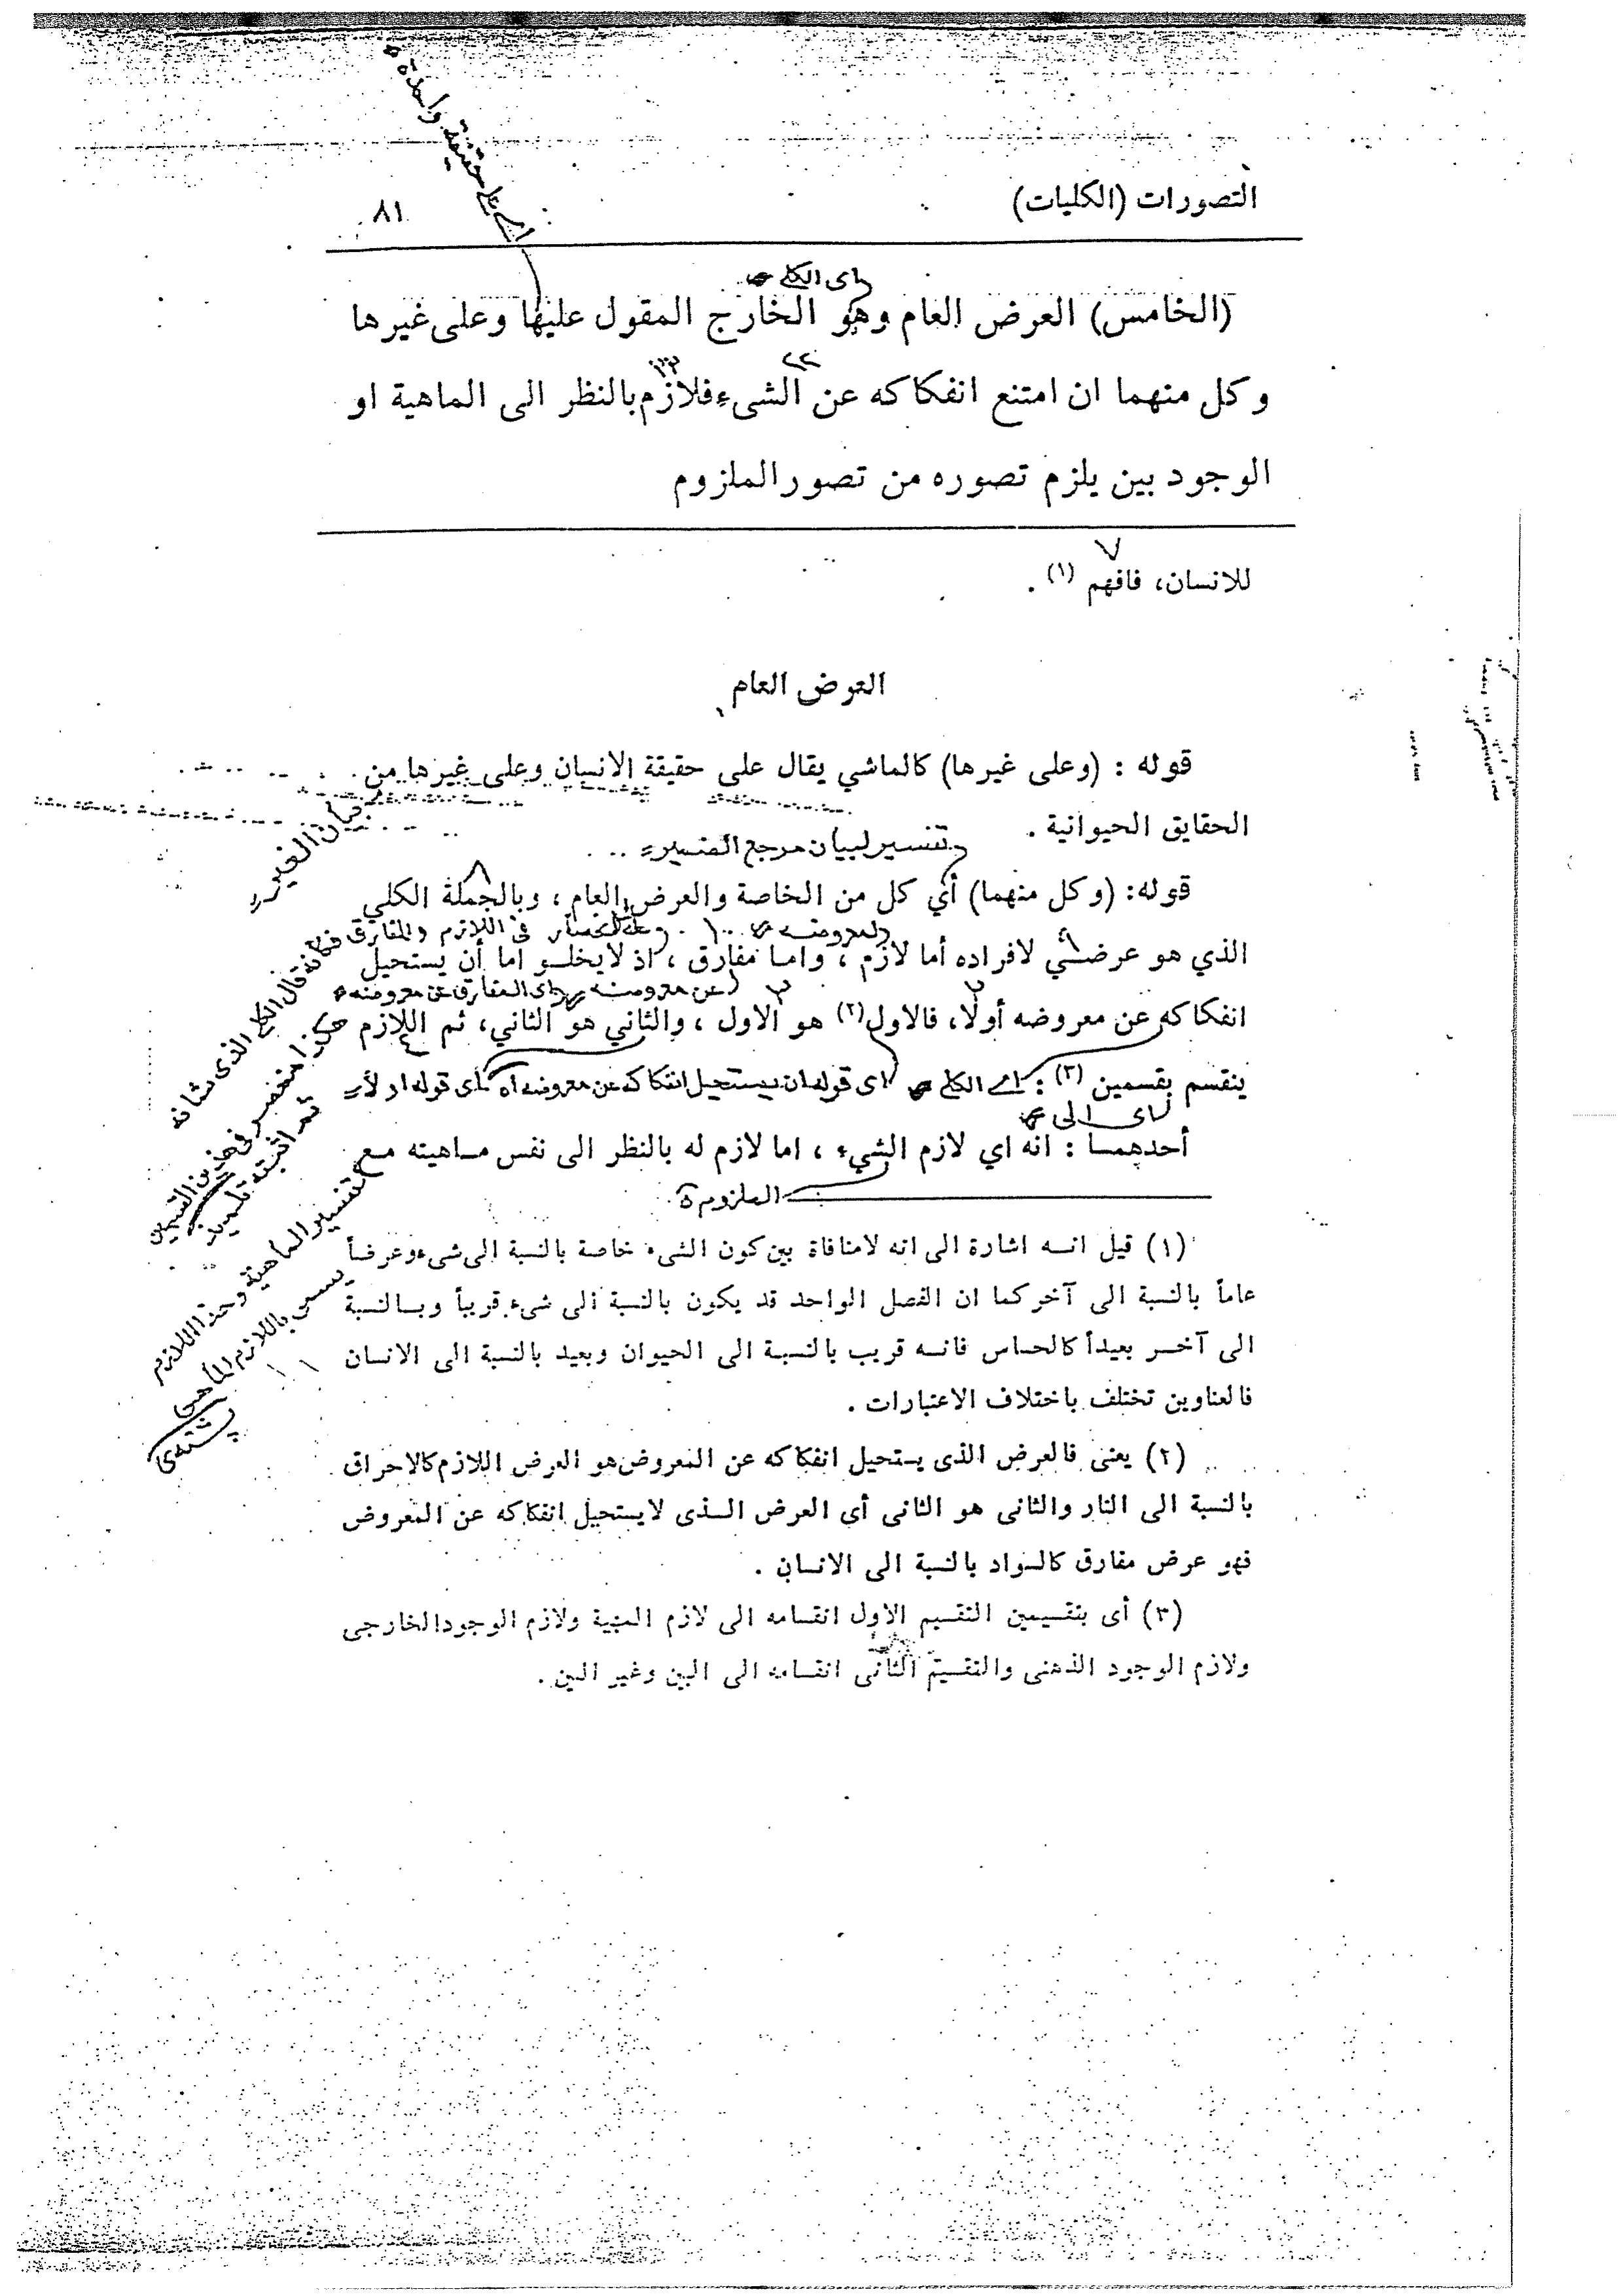 التصورات (الكليات)
٨١
اى الكلى
(الخامس) العرض العام وهو الخارج المقول عليها وعلى غيرها
وكل منهما ان امتنع انفكاكه عن الشىء فلازم بالنظر الى الماهية او
الوجود بين يلزم تصوره من تصور الملزوم
للانسان، فافهم (١) .
العرض العام
قوله : (وعلى غيرها) كالماشي يقال على حقيقة الانسان وعلى غيرها من
الحقايق الحيوانية .
تفسير لبيان مرجع الضمير
قوله: (وكل منهما) أي كل من الخاصة والعرض العام ، وبالجملة الكلي
لمعروضه
الذي هو عرضي لافراده أما لازم ، واما مفارق ، اذ لايخلو اما أن يستحيل
عن معروضه اى المفارق عن معروضه
انفكاكه عن معروضه أولا، فالاول (٢) هو الاول ، والثاني هو الثاني، ثم اللازم
ينقسم بقسمين (٣) :
اى الكلى اى قوله ان يستحيل انفكاكه عن معروضه اه اى قوله اولا
أحدهما : انه اي لازم الشيء ، اما لازم له بالنظر الى نفس ماهيته مع
الملزومة
(١) قيل انه اشارة الى انه لامنافاة بين كون الشىء خاصة بالنسبة الى شىء وعرضاً
عاماً بالنسبة الى آخر كما ان الفصل الواحد قد يكون بالنسبة الى شىء قريباً وبالنسبة
الى آخر بعيداً كالحساس فانه قريب بالنسبة الى الحيوان وبعيد بالنسبة الى الانسان
فالعناوين تختلف باختلاف الاعتبارات .
(٢) يعنى فالعرض الذى يستحيل انفكاكه عن المعروض هو العرض اللازم كالاحراق
بالنسبة الى النار والثانى هو الثانى أى العرض الذى لايستحيل انفكاكه عن المعروض
فهو عرض مفارق كالسواد بالنسبة الى الانسان .
(٣) أى بتقسيمين التقسيم الاول انقسامه الى لازم المهية ولازم الوجود الخارجى
ولازم الوجود الذهنى والتقسيم الثانى انقسامه الى البين وغير البين .
بيان الغير
تفسير الماهية وهذا اللازم
يسمى باللازم الماهى